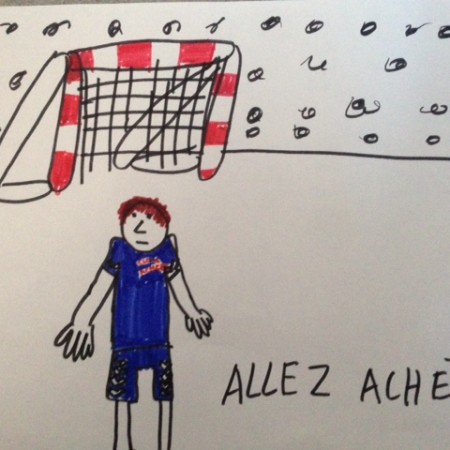 ALLEZ ACHÈ